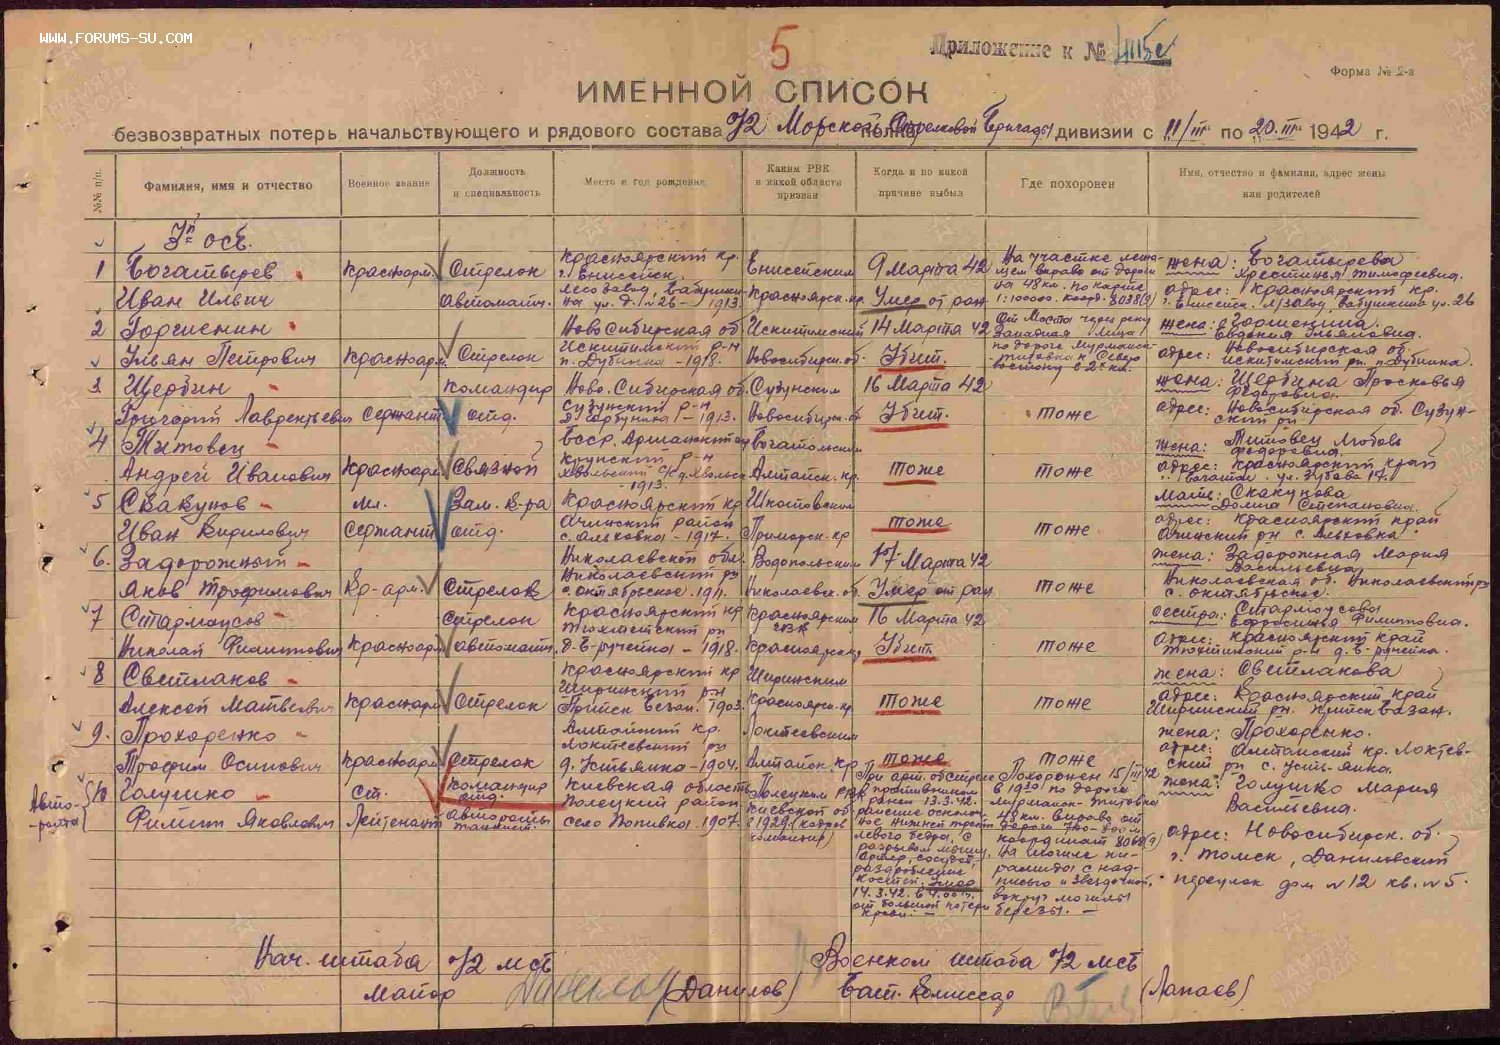 WWW.FORUMS-SU.COM
5
Приложение к № 4115с
Форма № 2-а
ИМЕННОЙ СПИСОК
безвозвратных потерь начальствующего и рядового состава 72 Морской Стрелковой Бригады полка дивизии с 11/III по 20.III 1942 г.
№№ п/п.
Фамилия, имя и отчество
Военное звание
Должность и специальность
Место и год рождения
Каким РВК и какой области призван
Когда и по какой причине выбыл
Где похоронен
Имя, отчество и фамилия, адрес жены или родителей
1 Богатырев Иван Ильич
Красноарм.
Стрелок автоматч.
Красноярский кр.
г. Енисейск.
1913.
Енисейским
Красноярск. кр.
9 Марта 42
Умер от ран
На участке
вправо от дороги
на 48 км. по карте
1:100000. коорд. 8038(9)
жена: Богатырева
Хрестинья Тимофеевна.
адрес: Красноярский кр.
г. Енисейск, л/завод, Бабушкина ул. 26
2 Горшенин
Ульян Петрович
Красноарм
Стрелок
Новосибирская об.
Искитимский р-н
п. Дубинка - 1918.
Искитимский
Новосибирск. об.
14 Марта 42
Убит.
От Моста через реку
Западная Лица
по дороге Мурманск-
Титовка к Северо
востоку в 2х км.
жена: Горшенина
Евдокия Ульяновна.
адрес: Новосибирская об.
Искитимский рн. п. Дубинка.
3 Щербин
Григорий Лаврентьевич
Сержант
командир отд.
Ново. Сибирская об.
Сузунский р-н
1913.
Сузунским
Новосибирск. об.
16 Марта 42
Убит.
тоже
жена: Щербина Просковья
Федоровна.
адрес: Новосибирская об. Сузун-
ский рн
4 Титовец
Андрей Иванович
Красноарм
Связной
БССР.
Крупский р-н
1913.
Боготольским
Алтайск. кр.
тоже
тоже
жена: Титовец Любовь
Федоровна.
адрес: Красноярский край
г. Боготол ул. Зубова 17.
5 Скакунов
Иван Кирилович
мл. сержант
Зам. к-ра отд.
Красноярский кр
Ачинский район
с. Ольховка - 1917.
Шкотовским
Приморск. кр
тоже
тоже
мать: Скакунова
Степановна.
адрес: Красноярский край
Ачинский рн с. Ольховка
6. Задорожный
Яков Трофимович
Кр-арм.
Стрелок
Николаевской обл.
Николаевский рн
с. октябрьское. 1911.
Водопольским
Николаевск. об.
17 Марта 42
Умер от ран
тоже
жена: Задорожная Мария
Васильевна
Николаевская об. Николаевский рн
с. октябрьское.
7 Стармоусов
Николай Филиппович
Красноарм
Стрелок автоматч.
Красноярский кр
Тюхтетский рн
д. В-речинка - 1918.
Красноярским
Красноярск. кр
16 Марта 42
Убит.
тоже
сестра: Стармоусова
Ефросинья Филипповна.
адрес: Красноярский край
Тюхтетский р-н д. В-речинка.
8 Светлаков
Алексей Матвеевич
Красноарм
Стрелок
Красноярский кр
Ширинский рн
1903.
Ширинским
Красноярск. кр
тоже
тоже
жена: Светлакова
адрес: Красноярский край
Ширинский рн.
9. Прохоренко
Трофим Осипович
Красноарм
Стрелок
Алтайский кр.
Локтевский рн
д. Устьянка - 1904.
Локтевским
Алтайск. кр
тоже
тоже
жена: Прохоренко.
адрес: Алтайский кр. Локтев-
ский рн с. Усть-янка.
Авто-
рота
10 Голушко
Филипп Яковлович
Ст. Лейтенант
командир отд.
авторопы
Киевская область
Полецкий район
село Попивка. 1907.
Полецком РВК
Киевской об.
в 1929. (кадров
командир)
При арт. обстреле
противником
ранен 13.3.42.
ранение осколком
левого бедра, с
раздробление
костей. Умер
14.3.42. в 4.00 ч.
от большой потери
крови. —
Похоронен 15/III 42
в 1930 по дороге
Мурманск-Титовка
48 км. вправо от
дороги 700-800 м
координат 8068(9)
на могиле пи-
рамида с над-
писью и звездочкой,
вокруг могилы
березы. —
жена: Голушко Мария
Васильевна.
адрес: Новосибирск. об.
г. Томск, Даниловский
переулок дом №12 кв. №5.
Нач. штаба 72 мсб
майор (Данилов)
Военком штаба 72 мсб
Бат. Комиссар (Лапаев)